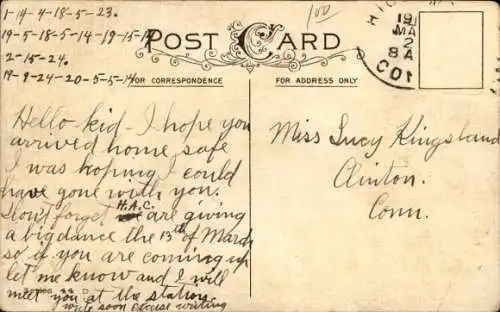 1-14-4-18-5-23.
19-5-18-5-14-19-15-14
2-15-24.
19-9-24-20-5-5-14
100
POST CARD
FOR CORRESPONDENCE
FOR ADDRESS ONLY
191
MA
2
8 A
CON
Hello kid - I hope you
arrived home safe
I was hoping I could
have gone with you.
Don't forget H.A.C. are giving
a big dance the 13th of March
so if you are coming up
let me know and I will
meet you at the station
write soon excuse writing
Miss Lucy Kingsland
Clinton.
Conn.